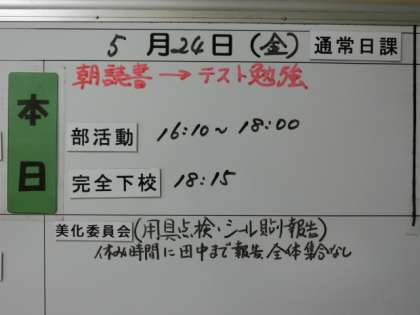 5月24日(金) 通常日課
朝読書→テスト勉強
本日
部活動 16:10~18:00
完全下校 18:15
美化委員会(用具点検・シール貼り報告)
休み時間に田中まで報告 全体集合なし